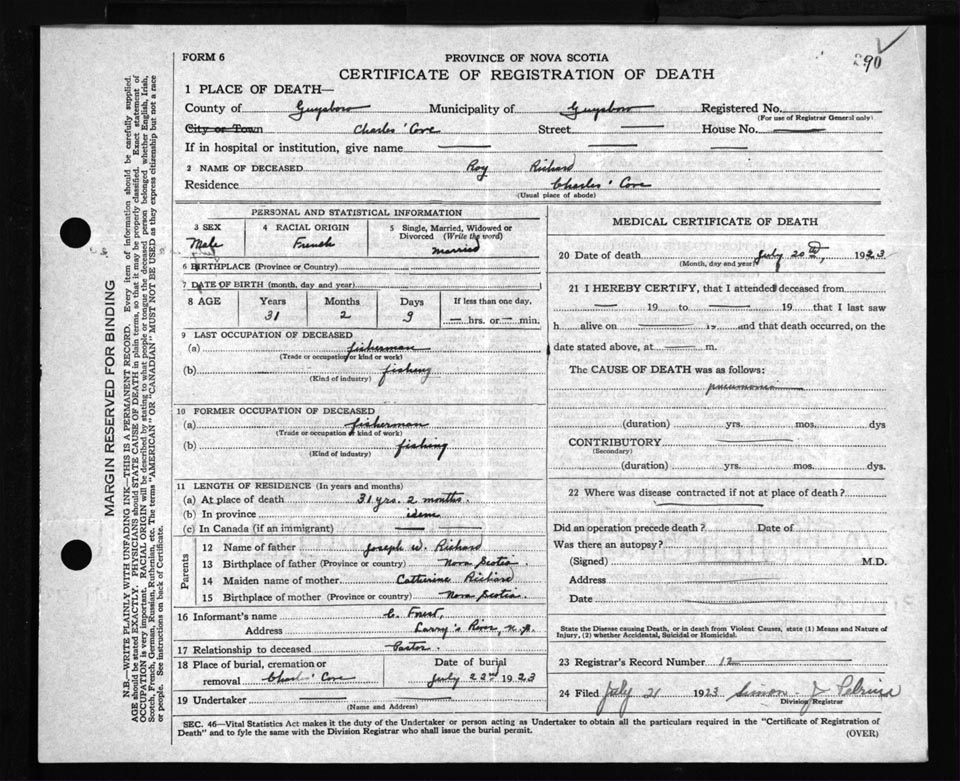 290
FORM 6
PROVINCE OF NOVA SCOTIA
CERTIFICATE OF REGISTRATION OF DEATH
1 PLACE OF DEATH—
County of Guysboro Municipality of Guysboro Registered No.
(For use of Registrar General only)
City or Town Charles' Cove Street — House No. —
If in hospital or institution, give name — — —
2 NAME OF DECEASED Roy Richard
Residence Charles' Cove
(Usual place of abode)
PERSONAL AND STATISTICAL INFORMATION
3 SEX 4 RACIAL ORIGIN 5 Single, Married, Widowed or
Divorced (Write the word)
Male French married
6 BIRTHPLACE (Province or Country)
7 DATE OF BIRTH (month, day and year)
8 AGE Years Months Days If less than one day,
31 2 9 — hrs. or — min.
9 LAST OCCUPATION OF DECEASED
(a) fisherman
(Trade or occupation or kind or work)
(b) fishing
(Kind of industry)
10 FORMER OCCUPATION OF DECEASED
(a) fisherman
(Trade or occupation or kind of work)
(b) fishing
(Kind of industry)
11 LENGTH OF RESIDENCE (In years and months)
(a) At place of death 31 yrs. 2 months.
(b) In province idem
(c) In Canada (if an immigrant) — —
Parents
12 Name of father Joseph W. Richard
13 Birthplace of father (Province or country) Nova Scotia
14 Maiden name of mother Catherine Richard
15 Birthplace of mother (Province or country) Nova Scotia
16 Informant's name C. Forest,
Address Larry's River, N.S.
17 Relationship to deceased Pastor
18 Place of burial, cremation or Date of burial
removal Charles' Cove July 22nd 1923
19 Undertaker —
(Name and Address)
MEDICAL CERTIFICATE OF DEATH
20 Date of death July 20th, 1923
(Month, day and year)
21 I HEREBY CERTIFY, that I attended deceased from
— 19 to — 19 that I last saw
h alive on — 19 and that death occurred, on the
date stated above, at — m.
The CAUSE OF DEATH was as follows:
pneumonia
(duration) yrs. mos. dys
CONTRIBUTORY —
(Secondary)
(duration) yrs. mos. dys.
22 Where was disease contracted if not at place of death?
—
Did an operation precede death? Date of
Was there an autopsy?
(Signed) — M.D.
Address —
Date —
State the Disease causing Death, or in death from Violent Causes, state (1) Means and Nature of
Injury, (2) whether Accidental, Suicidal or Homicidal.
23 Registrar's Record Number 12
24 Filed July 21 1923 Simon J Pelrine
Division Registrar
SEC. 46—Vital Statistics Act makes it the duty of the Undertaker or person acting as Undertaker to obtain all the particulars required in the "Certificate of Registration of
Death" and to fyle the same with the Division Registrar who shall issue the burial permit.
(OVER)
MARGIN RESERVED FOR BINDING
N.B.—WRITE PLAINLY WITH UNFADING INK—THIS IS A PERMANENT RECORD. Every item of information should be carefully supplied.
AGE should be stated EXACTLY. PHYSICIANS should STATE CAUSE OF DEATH in plain terms, so that it may be properly classified. Exact statement of
OCCUPATION is very important. RACIAL ORIGIN will be described by stating to what people or tongue the deceased person belonged whether English, Irish,
Scotch, French, German, Russian, Ruthenian, etc. The terms "AMERICAN" OR "CANADIAN" MUST NOT BE USED as they express citizenship but not a race
or people. See instructions on back of Certificate.